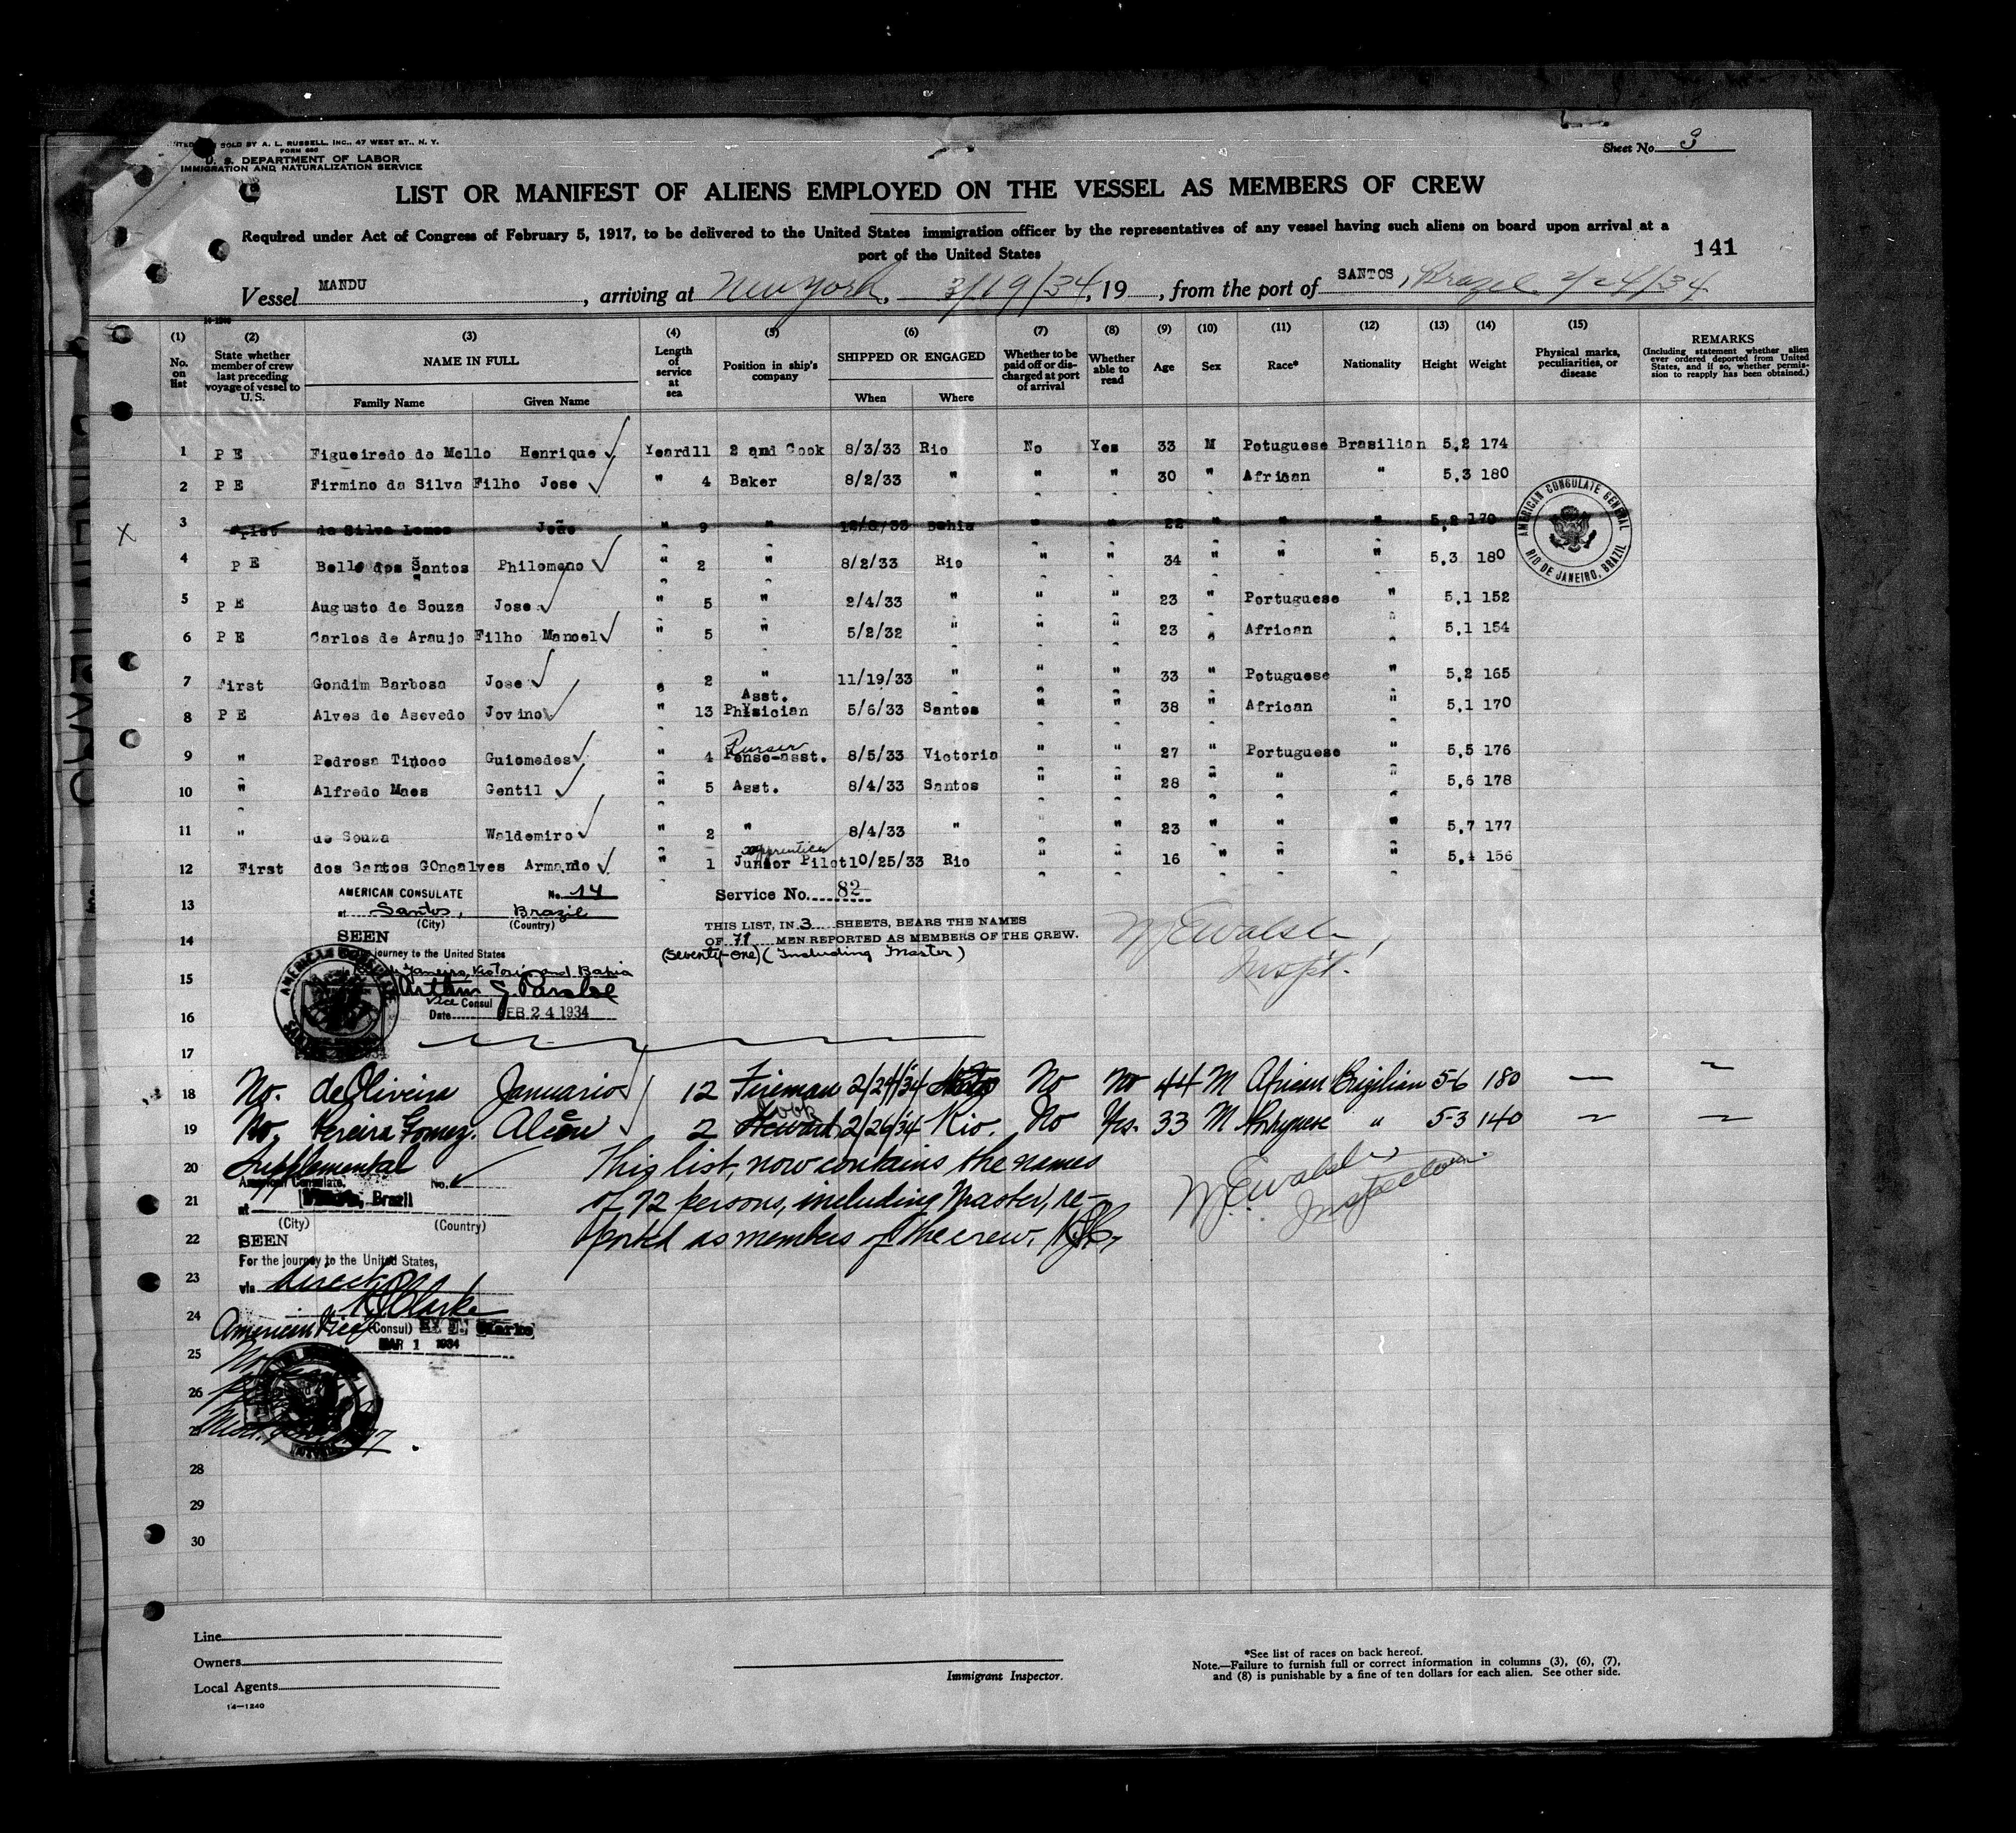 SOLD BY A. L. RUSSELL, INC., 47 WEST ST., N. Y.
FORM 686
U. S. DEPARTMENT OF LABOR
IMMIGRATION AND NATURALIZATION SERVICE
Sheet No. 3
LIST OR MANIFEST OF ALIENS EMPLOYED ON THE VESSEL AS MEMBERS OF CREW
Required under Act of Congress of February 5, 1917, to be delivered to the United States immigration officer by the representatives of any vessel having such aliens on board upon arrival at a
port of the United States
141
Vessel MANDU, arriving at New York, 3/19/34, 19, from the port of SANTOS, Brazil 2/24/34
(1) (2) (3) (4) (5) (6) (7) (8) (9) (10) (11) (12) (13) (14) (15) REMARKS
No. on list State whether member of crew last preceding voyage of vessel to U. S. NAME IN FULL Length of service at sea Position in ship's company SHIPPED OR ENGAGED Whether to be paid off or discharged at port of arrival Whether able to read Age Sex Race* Nationality Height Weight Physical marks, peculiarities, or disease (Including statement whether alien ever ordered deported from United States, and if so, whether permission to reapply has been obtained.)
Family Name Given Name When Where
1 P E Figueiredo de Mello Henrique Yeard11 2 and Cook 8/3/33 Rio No Yes 33 M Potuguese Brasilian 5,2 174
2 P E Firmino da Silva Filho Jose " 4 Baker 8/2/33 " " " 30 " African " 5,3 180
3 da Silva Lemos João " 9 " 12/8/33 Bahia " " 22 " " " 5,2 170
4 P E Bello dos Santos Philomeno " 2 " 8/2/33 Rio " " 34 " " " 5,3 180
5 P E Augusto de Souza Jose " 5 " 2/4/33 " " " 23 " Portuguese " 5,1 152
6 P E Carlos de Araujo Filho Manoel " 5 " 5/2/32 " " " 23 " African " 5,1 154
7 First Gondim Barbosa Jose " 2 " 11/19/33 " " " 33 " Potuguese " 5,2 165
8 P E Alves de Asevedo Jovino " 13 Asst. Physician 5/6/33 Santos " " 38 " African " 5,1 170
9 " Pedrosa Tinoco Guiomedes " 4 Purser Pense-asst. 8/5/33 Victoria " " 27 " Portuguese " 5,5 176
10 " Alfredo Maes Gentil " 5 Asst. 8/4/33 Santos " " 28 " " " 5,6 178
11 " de Souza Waldemiro " 2 " 8/4/33 " " " 23 " " " 5,7 177
12 First dos Santos GOncalves Armando " 1 apprentice Junior Pilot 10/25/33 Rio " " 16 " " " 5,4 156
13 AMERICAN CONSULATE No. 14 Service No. 82
at Santos, Brazil
(City) (Country)
THIS LIST, IN 3 SHEETS, BEARS THE NAMES
14 SEEN OF 71 MEN REPORTED AS MEMBERS OF THE CREW.
journey to the United States (Seventy-one) (Including Master)
M E Walsh, Insp't.
15 Janeiro, Victoria and Bahia
Vice Consul
16 Date FEB 24 1934
17
18 No. de Oliveira Januario 12 Fireman 2/24/34 No No 44 M African Brazilian 5-6 180
19 No. Pereira Gomez. 2 Cook Steward 2/26/34 Rio. No Yes. 33 M Portuguese " 5-3 140
20 Supplemental This list, now contains the names
American Consulate, No.
21 at Brazil of 72 persons, including Master, re-
(City) (Country)
22 SEEN ported as members of the crew.
M. E. Walsh, Inspector.
For the journey to the United States,
23 via direct
24 American Vice (Consul) Clarke
25 MAR 1 1934
26
27
28
29
30
AMERICAN CONSULATE GENERAL
RIO DE JANEIRO, BRAZIL
Line
Owners
Local Agents
14—1240
Immigrant Inspector.
*See list of races on back hereof.
Note.—Failure to furnish full or correct information in columns (3), (6), (7),
and (8) is punishable by a fine of ten dollars for each alien. See other side.